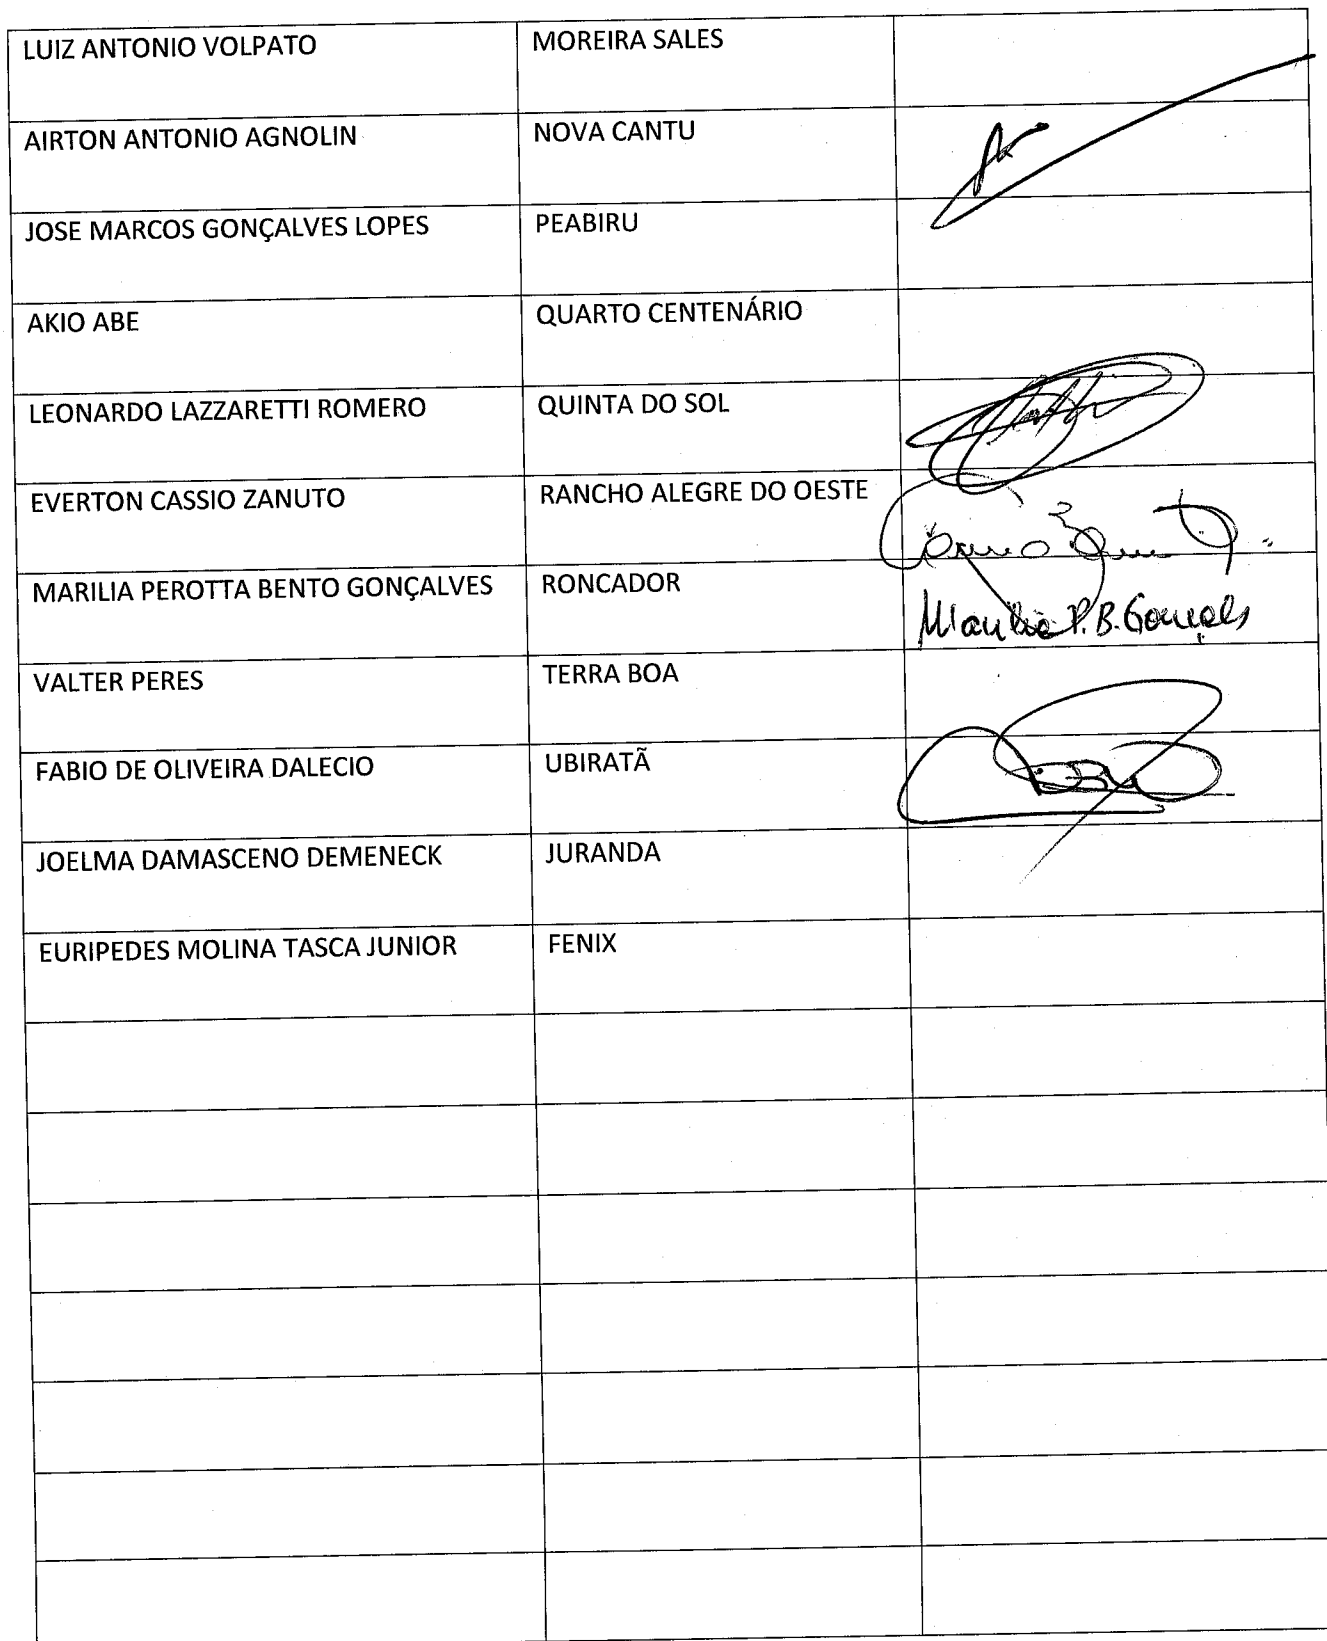 LUIZ ANTONIO VOLPATO MOREIRA SALES
AIRTON ANTONIO AGNOLIN NOVA CANTU
JOSE MARCOS GONÇALVES LOPES PEABIRU
AKIO ABE QUARTO CENTENÁRIO
LEONARDO LAZZARETTI ROMERO QUINTA DO SOL
EVERTON CASSIO ZANUTO RANCHO ALEGRE DO OESTE
MARILIA PEROTTA BENTO GONÇALVES RONCADOR Marilia P.B. Gonçals
VALTER PERES TERRA BOA
FABIO DE OLIVEIRA DALECIO UBIRATÃ
JOELMA DAMASCENO DEMENECK JURANDA
EURIPEDES MOLINA TASCA JUNIOR FENIX